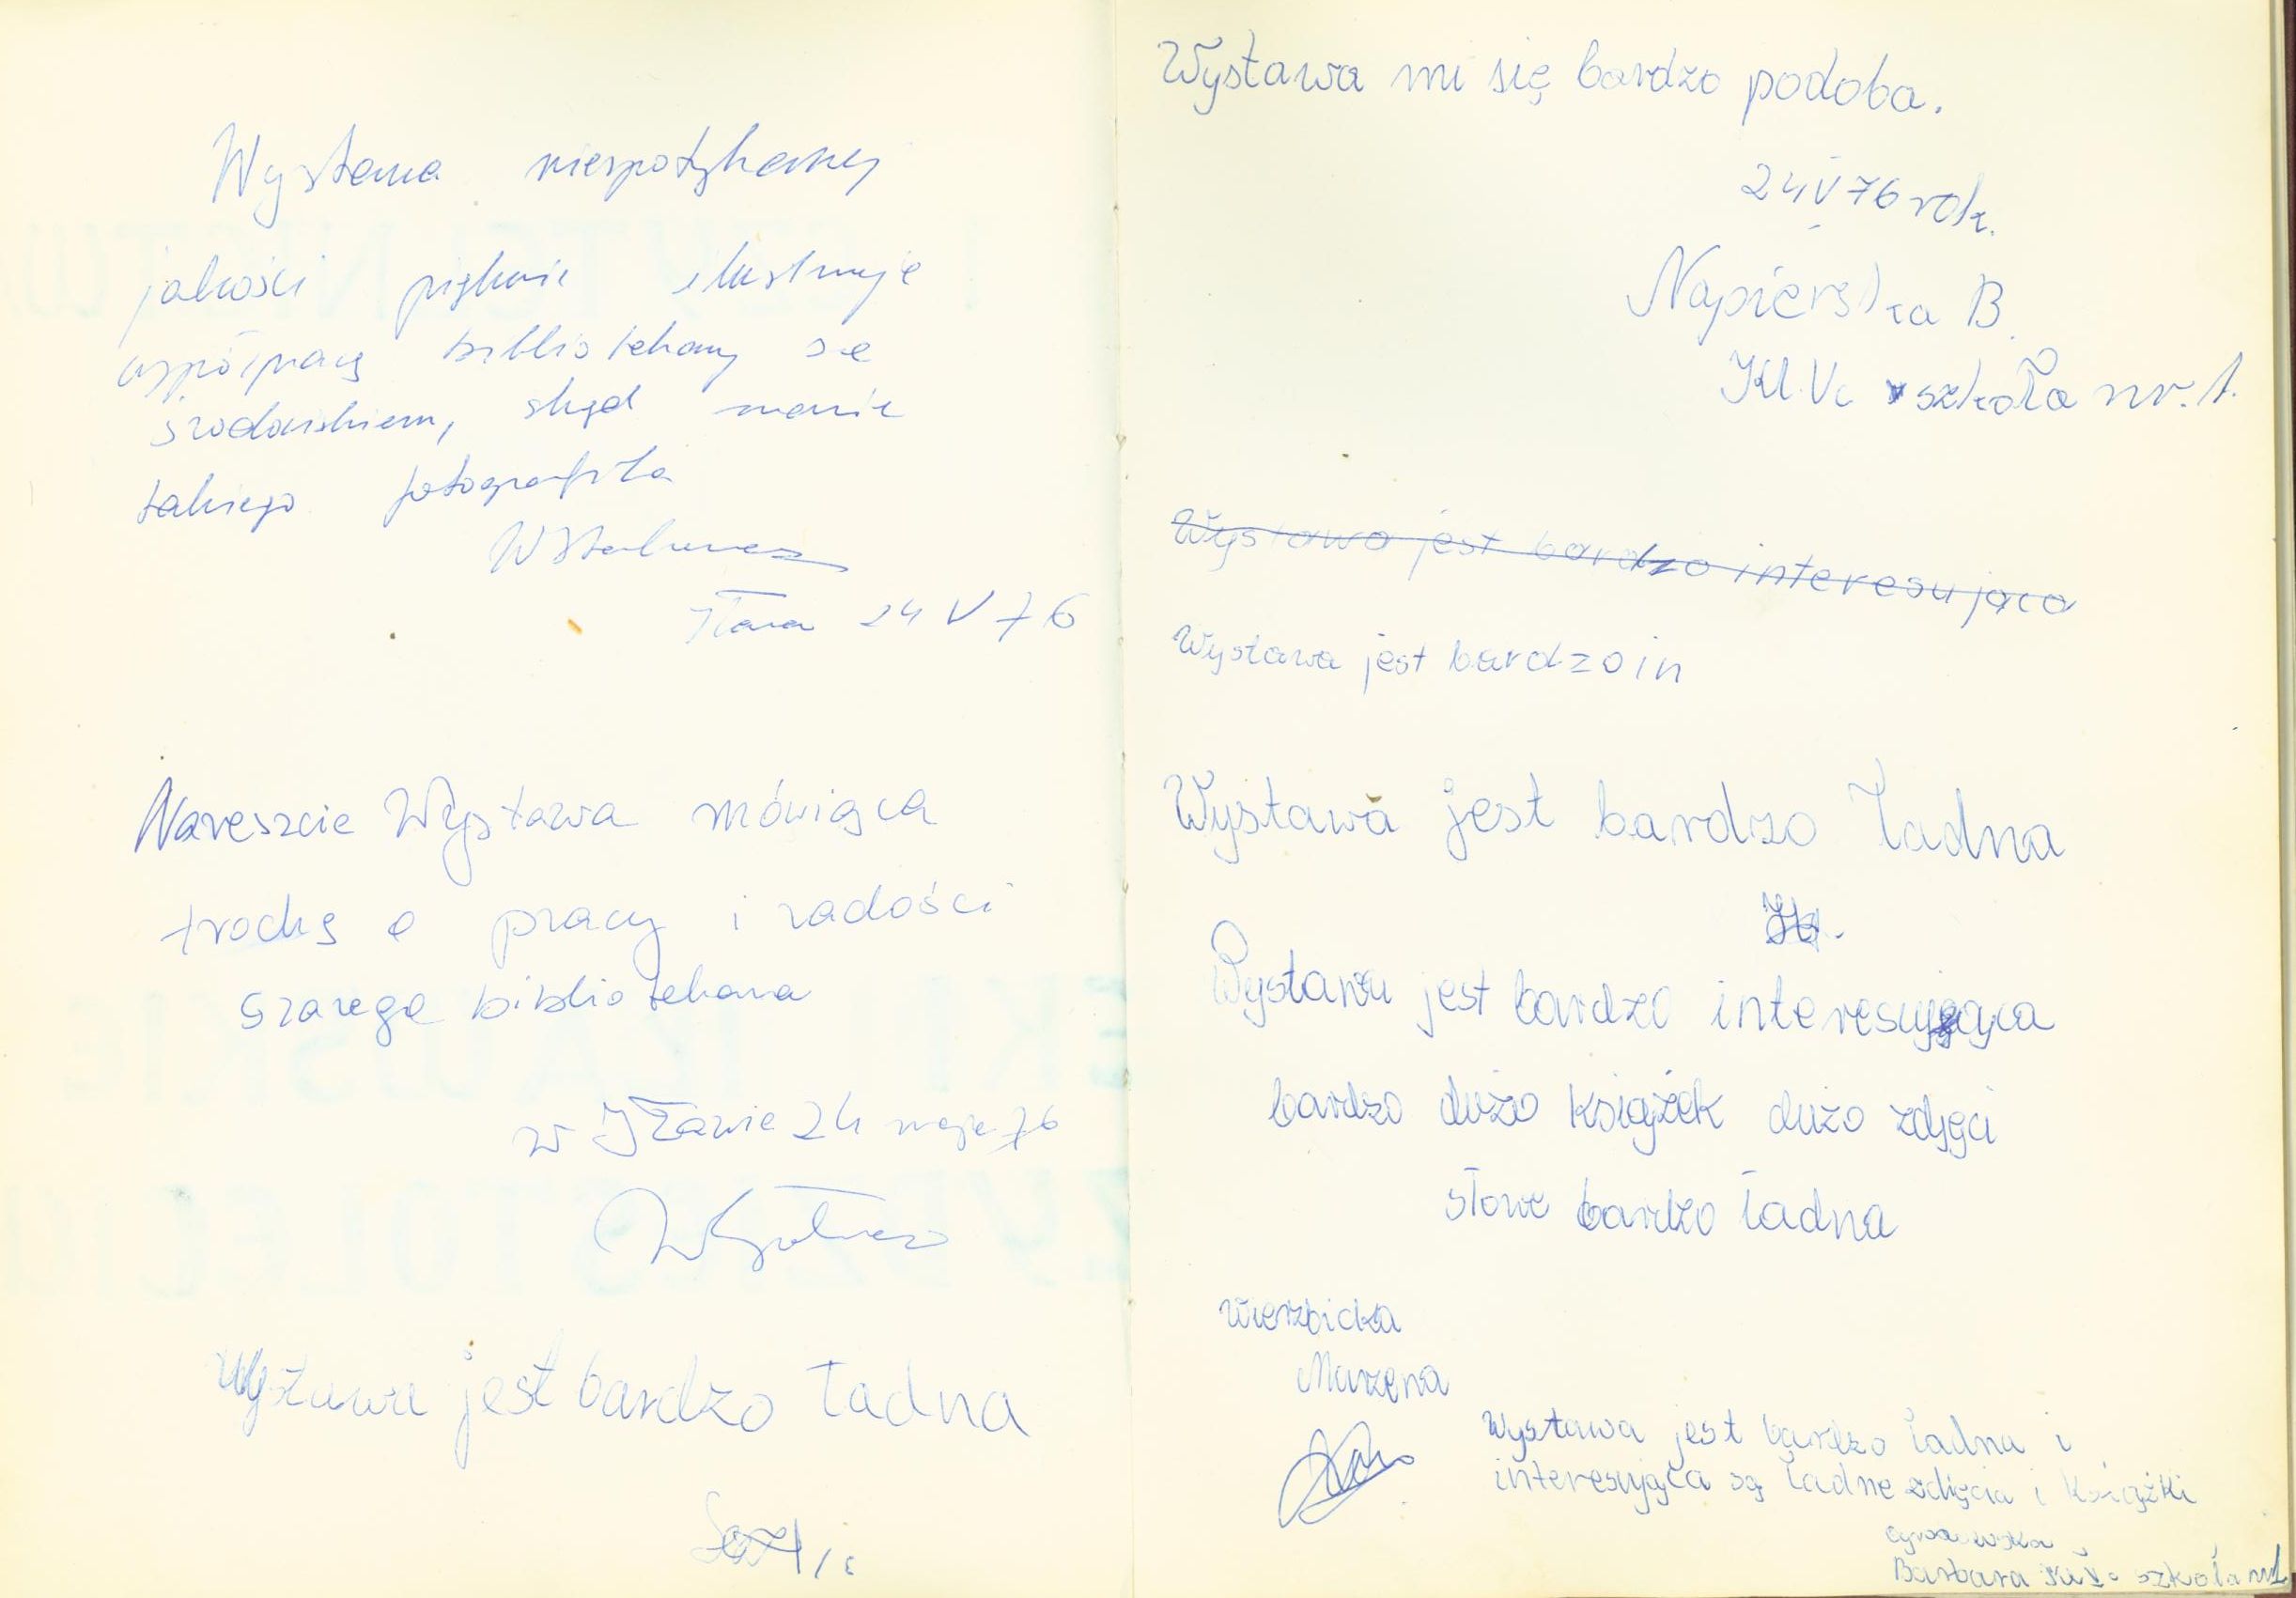 Wystawa niespotykanej
jakości pięknie ilustruje
współpracę bibliotekarzy ze
środowiskiem, skąd macie
takiego fotografika
Iława 24 V 76
Nareszcie Wystawa mówiąca
trochę o pracy i radości
szarego bibliotekarza
w Iławie 24 maja 76
jest bardzo ładna
Wystawa mi się bardzo podoba.
24 V 76 rok.
Napierska B.
Kl. Vc szkoła nr. 1.
Wystawa jest bardzo interesująca
Wystawa jest bardzo in
Wystawa jest bardzo ładna
Wystawa jest bardzo interesująca
bardzo dużo książek dużo zdjęci
słowe bardzo ładna
Wierzbicka
Marzena
Wystawa jest bardzo ładna i
interesująca są ładne zdięcia i książki
Barbara szkoła nr 1